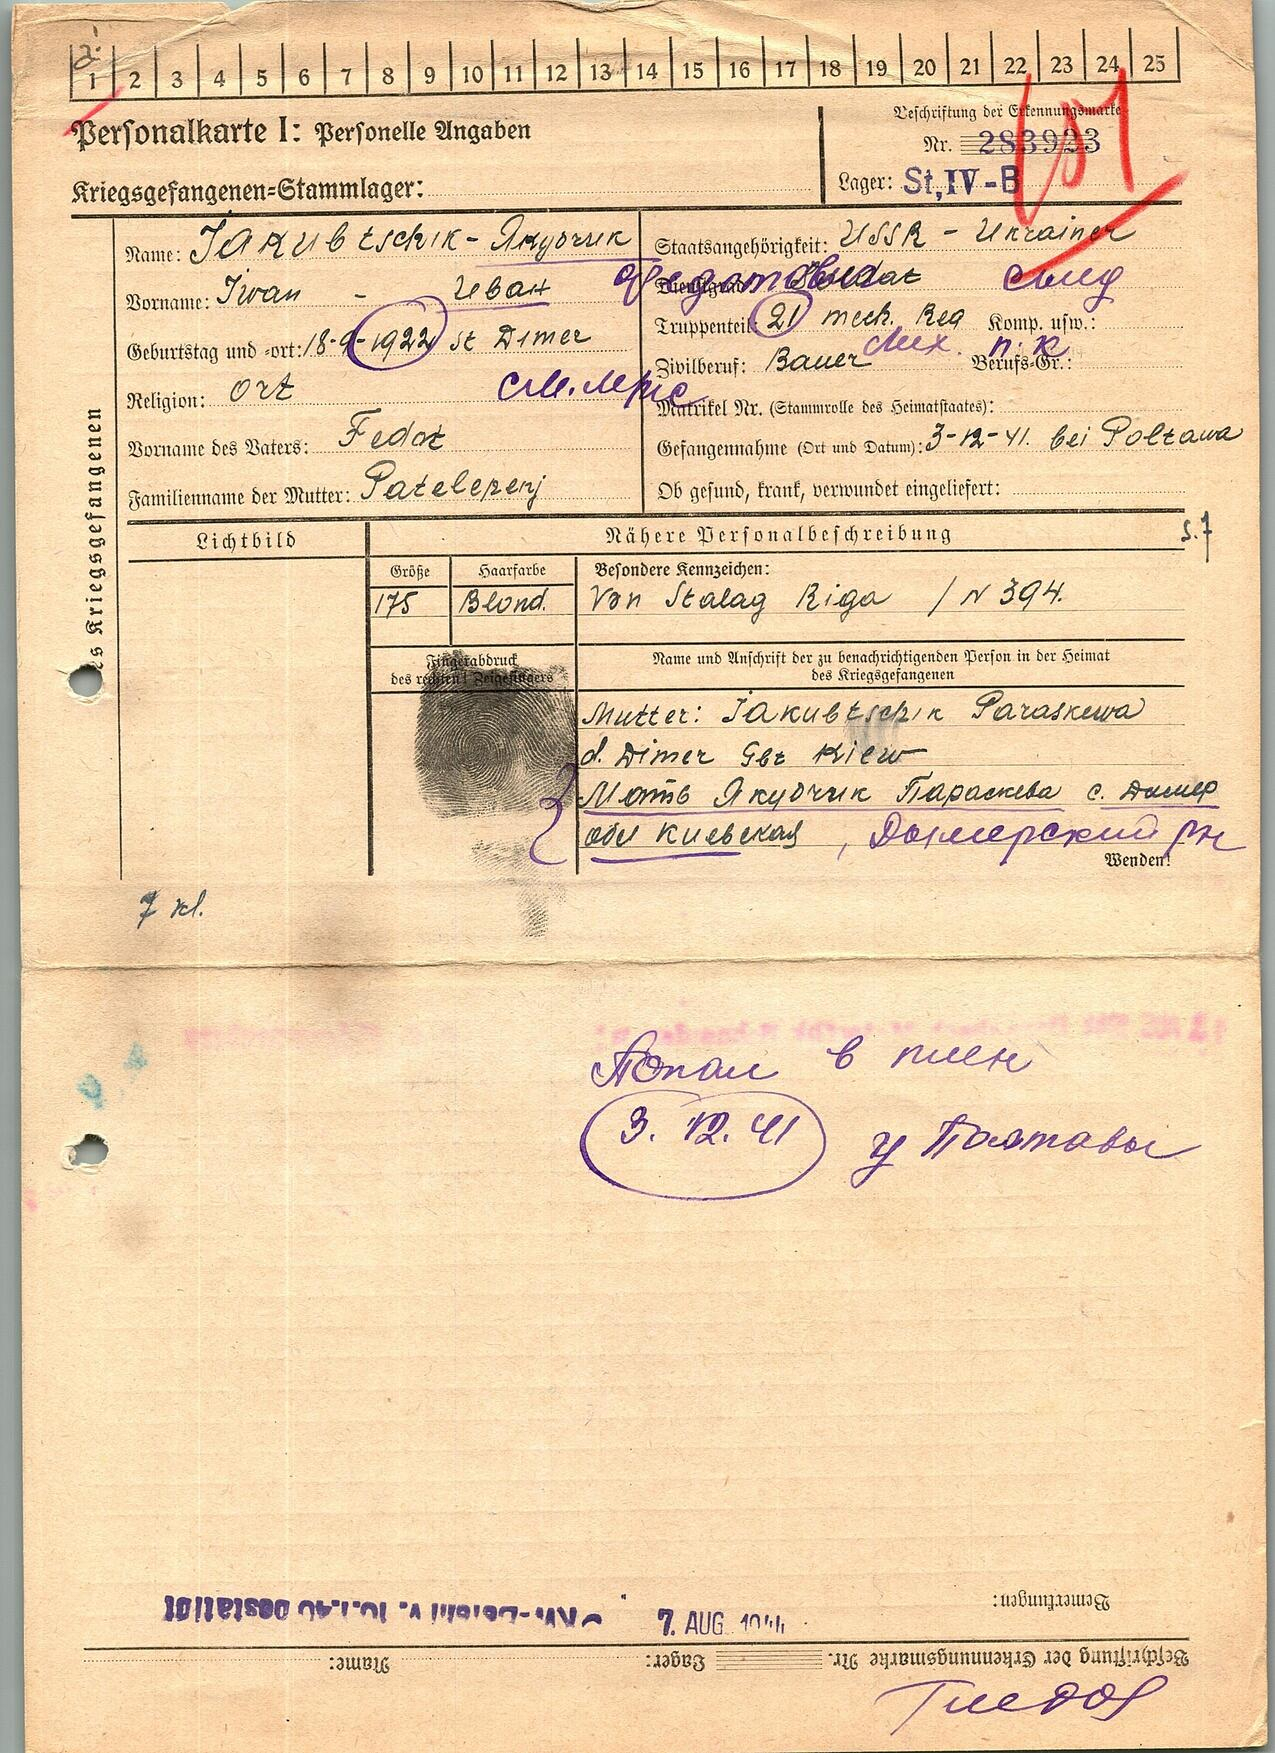 1 2 3 4 5 6 7 8 9 10 11 12 13 14 15 16 17 18 19 20 21 22 23 24 25
Personalkarte I: Personelle Angaben
Beschriftung der Erkennungsmarke
Nr. 283923
Kriegsgefangenen-Stammlager:
Lager: St, IV-B
des Kriegsgefangenen
Name: Jakubtschik - Якубчик
Vorname: Iwan - Иван
Geburtstag und -ort: 18-9-1922 st Dimer
Religion: Ort
Vorname des Vaters: Fedot
Familienname der Mutter: Patelepenj
Staatsangehörigkeit: USSR - Ukrainer
Dienstgrad: Soldat
Федотович
Truppenteil: 21 mech. Reg Komp. usw.:
Мех. п. к
Zivilberuf: Bauer Berufs-Gr.:
Matrikel Nr. (Stammrolle des Heimatstaates):
Gefangennahme (Ort und Datum): 3-12-41. bei Poltawa
Ob gesund, krank, verwundet eingeliefert:
Lichtbild
Nähere Personalbeschreibung
S. 7
Größe Haarfarbe Besondere Kennzeichen:
175 Blond. Von Stalag Riga / N 394.
Fingerabdruck
des rechten! Zeigefingers
Name und Anschrift der zu benachrichtigenden Person in der Heimat
des Kriegsgefangenen
Mutter: Jakubtschik Paraskewa
d. Dimer Gbt Kiew
Мать Якубчик Параскева с. Дымер
обл Киевская, Дымерский рн
Wenden!
7 kl.
Попал в плен
3. 12. 41 у Полтавы
Bemerkungen:
7. AUG 1944
Beschriftung der Erkennungsmarke Nr. Lager: Name: